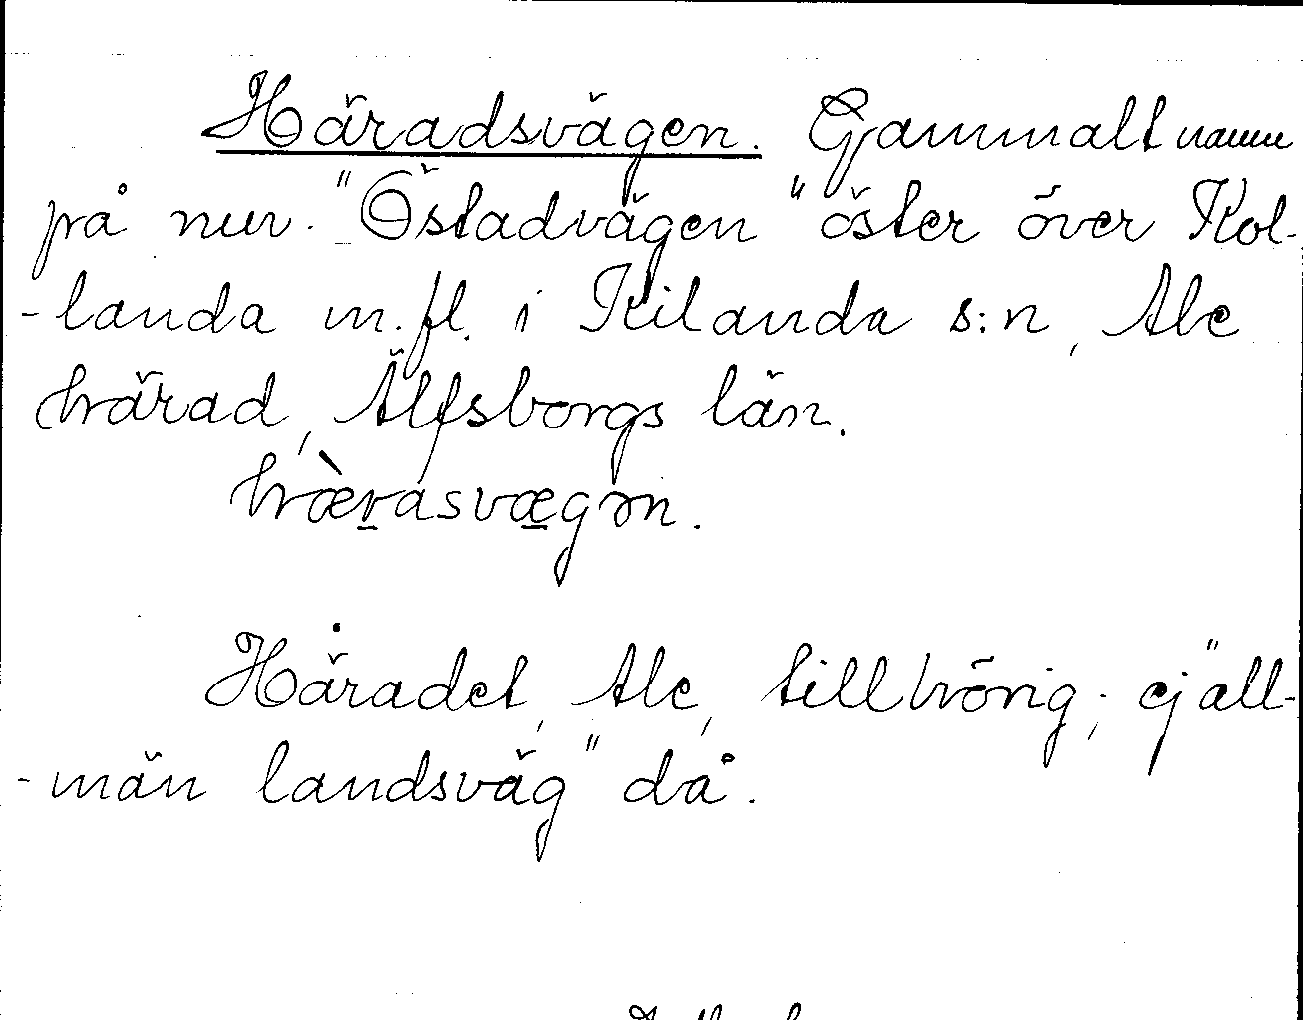 Häradsvägen. Gammalt namn
på nuv. "Östadvägen" öster över Kol-
-landa m.fl. i Kilanda s:n, Ale
härad, Älfsborgs län.
hæ̀r̲asvæ̲gən.
Häradet, Ale, tillhörig; ej "all-
-män landsväg" då.